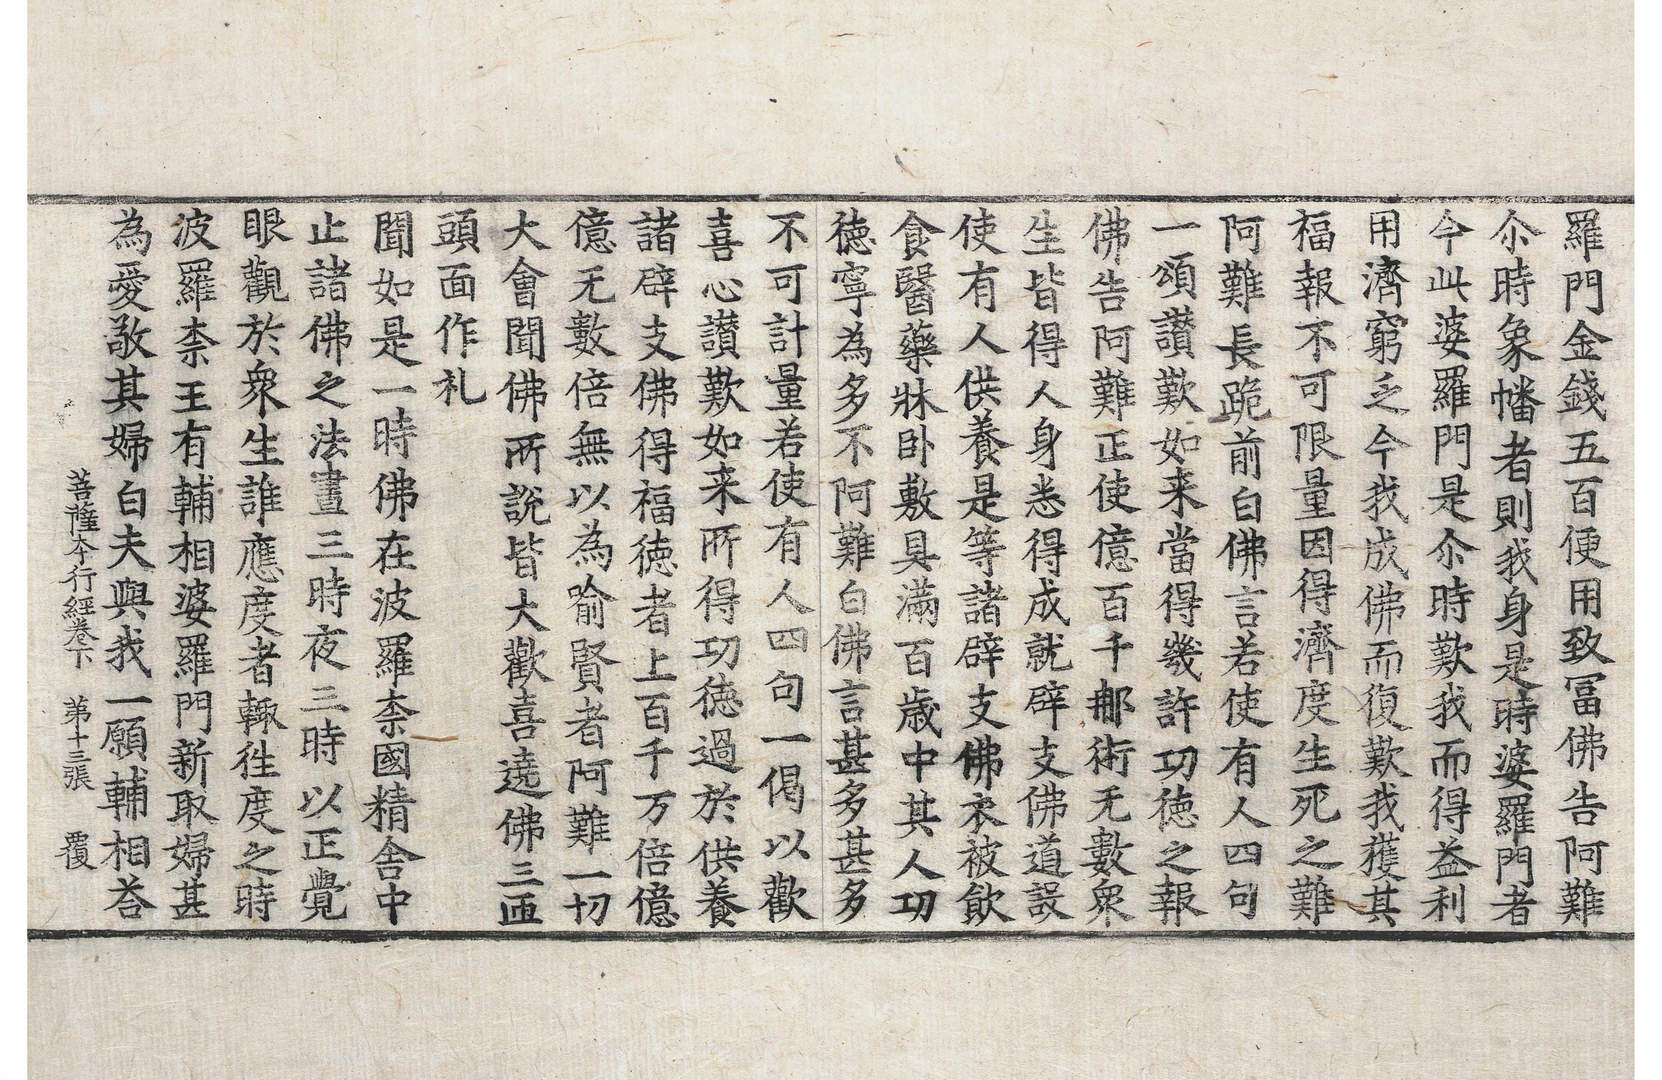 羅門金錢五百便用致冨佛告阿難
尒時象幡者則我身是時婆羅門者
今此婆羅門是尒時歎我而得益利
用濟窮乏今我成佛而復歎我獲其
福報不可限量因得濟度生死之難
阿難長跪前白佛言若使有人四句
一頌讃歎如来當得幾許功徳之報
佛告阿難正使億百千那術无數衆
生皆得人身悉得成就辟支佛道設
使有人供養是等諸辟支佛衣被飲
食醫藥牀卧敷具滿百歳中其人功
徳寧為多不阿難白佛言甚多甚多
不可計量若使有人四句一偈以歡
喜心讃歎如来所得功徳過於供養
諸辟支佛得福徳者上百千万倍億
億无數倍無以為喻賢者阿難一切
大會聞佛所說皆大歡喜遶佛三匝
頭面作礼
聞如是一時佛在波羅柰國精舍中
止諸佛之法晝三時夜三時以正覺
眼觀於衆生誰應度者輙徃度之時
波羅柰王有輔相婆羅門新取婦甚
為愛敬其婦白夫與我一願輔相荅
菩薩本行經卷下 第十三張 覆